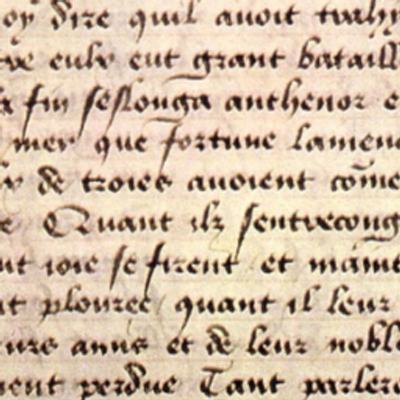 oy dire quil auoit trahy
tre eulx eut grant bataill
la fin seslonga anthenor e
mer que fortune lamen
de troies auoient cōme
e Quant ilz sentrecong
nt ioie se firent et maint
t plouree quant il leur
eurs amis et de leur nobl
ment perdue Tant parlere